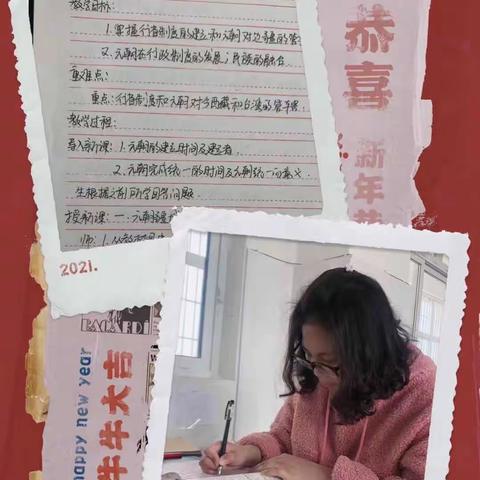 教学目标:
1.掌握行省制度的建立和元朝对边疆的管
2.元朝在行政制度的发展;民族的融合
重难点:
重点:行省制度和元朝对今西藏和台湾的管理.
教学过程:
导入新课:1.元朝的建立时间及建立者.
2.元朝完成统一的时间及元朝统一的意义.
生根据之前所学回答问题.
授新课:一.元朝
2021.
恭喜
新年
BAOXEDI
happy new year
牛牛大吉